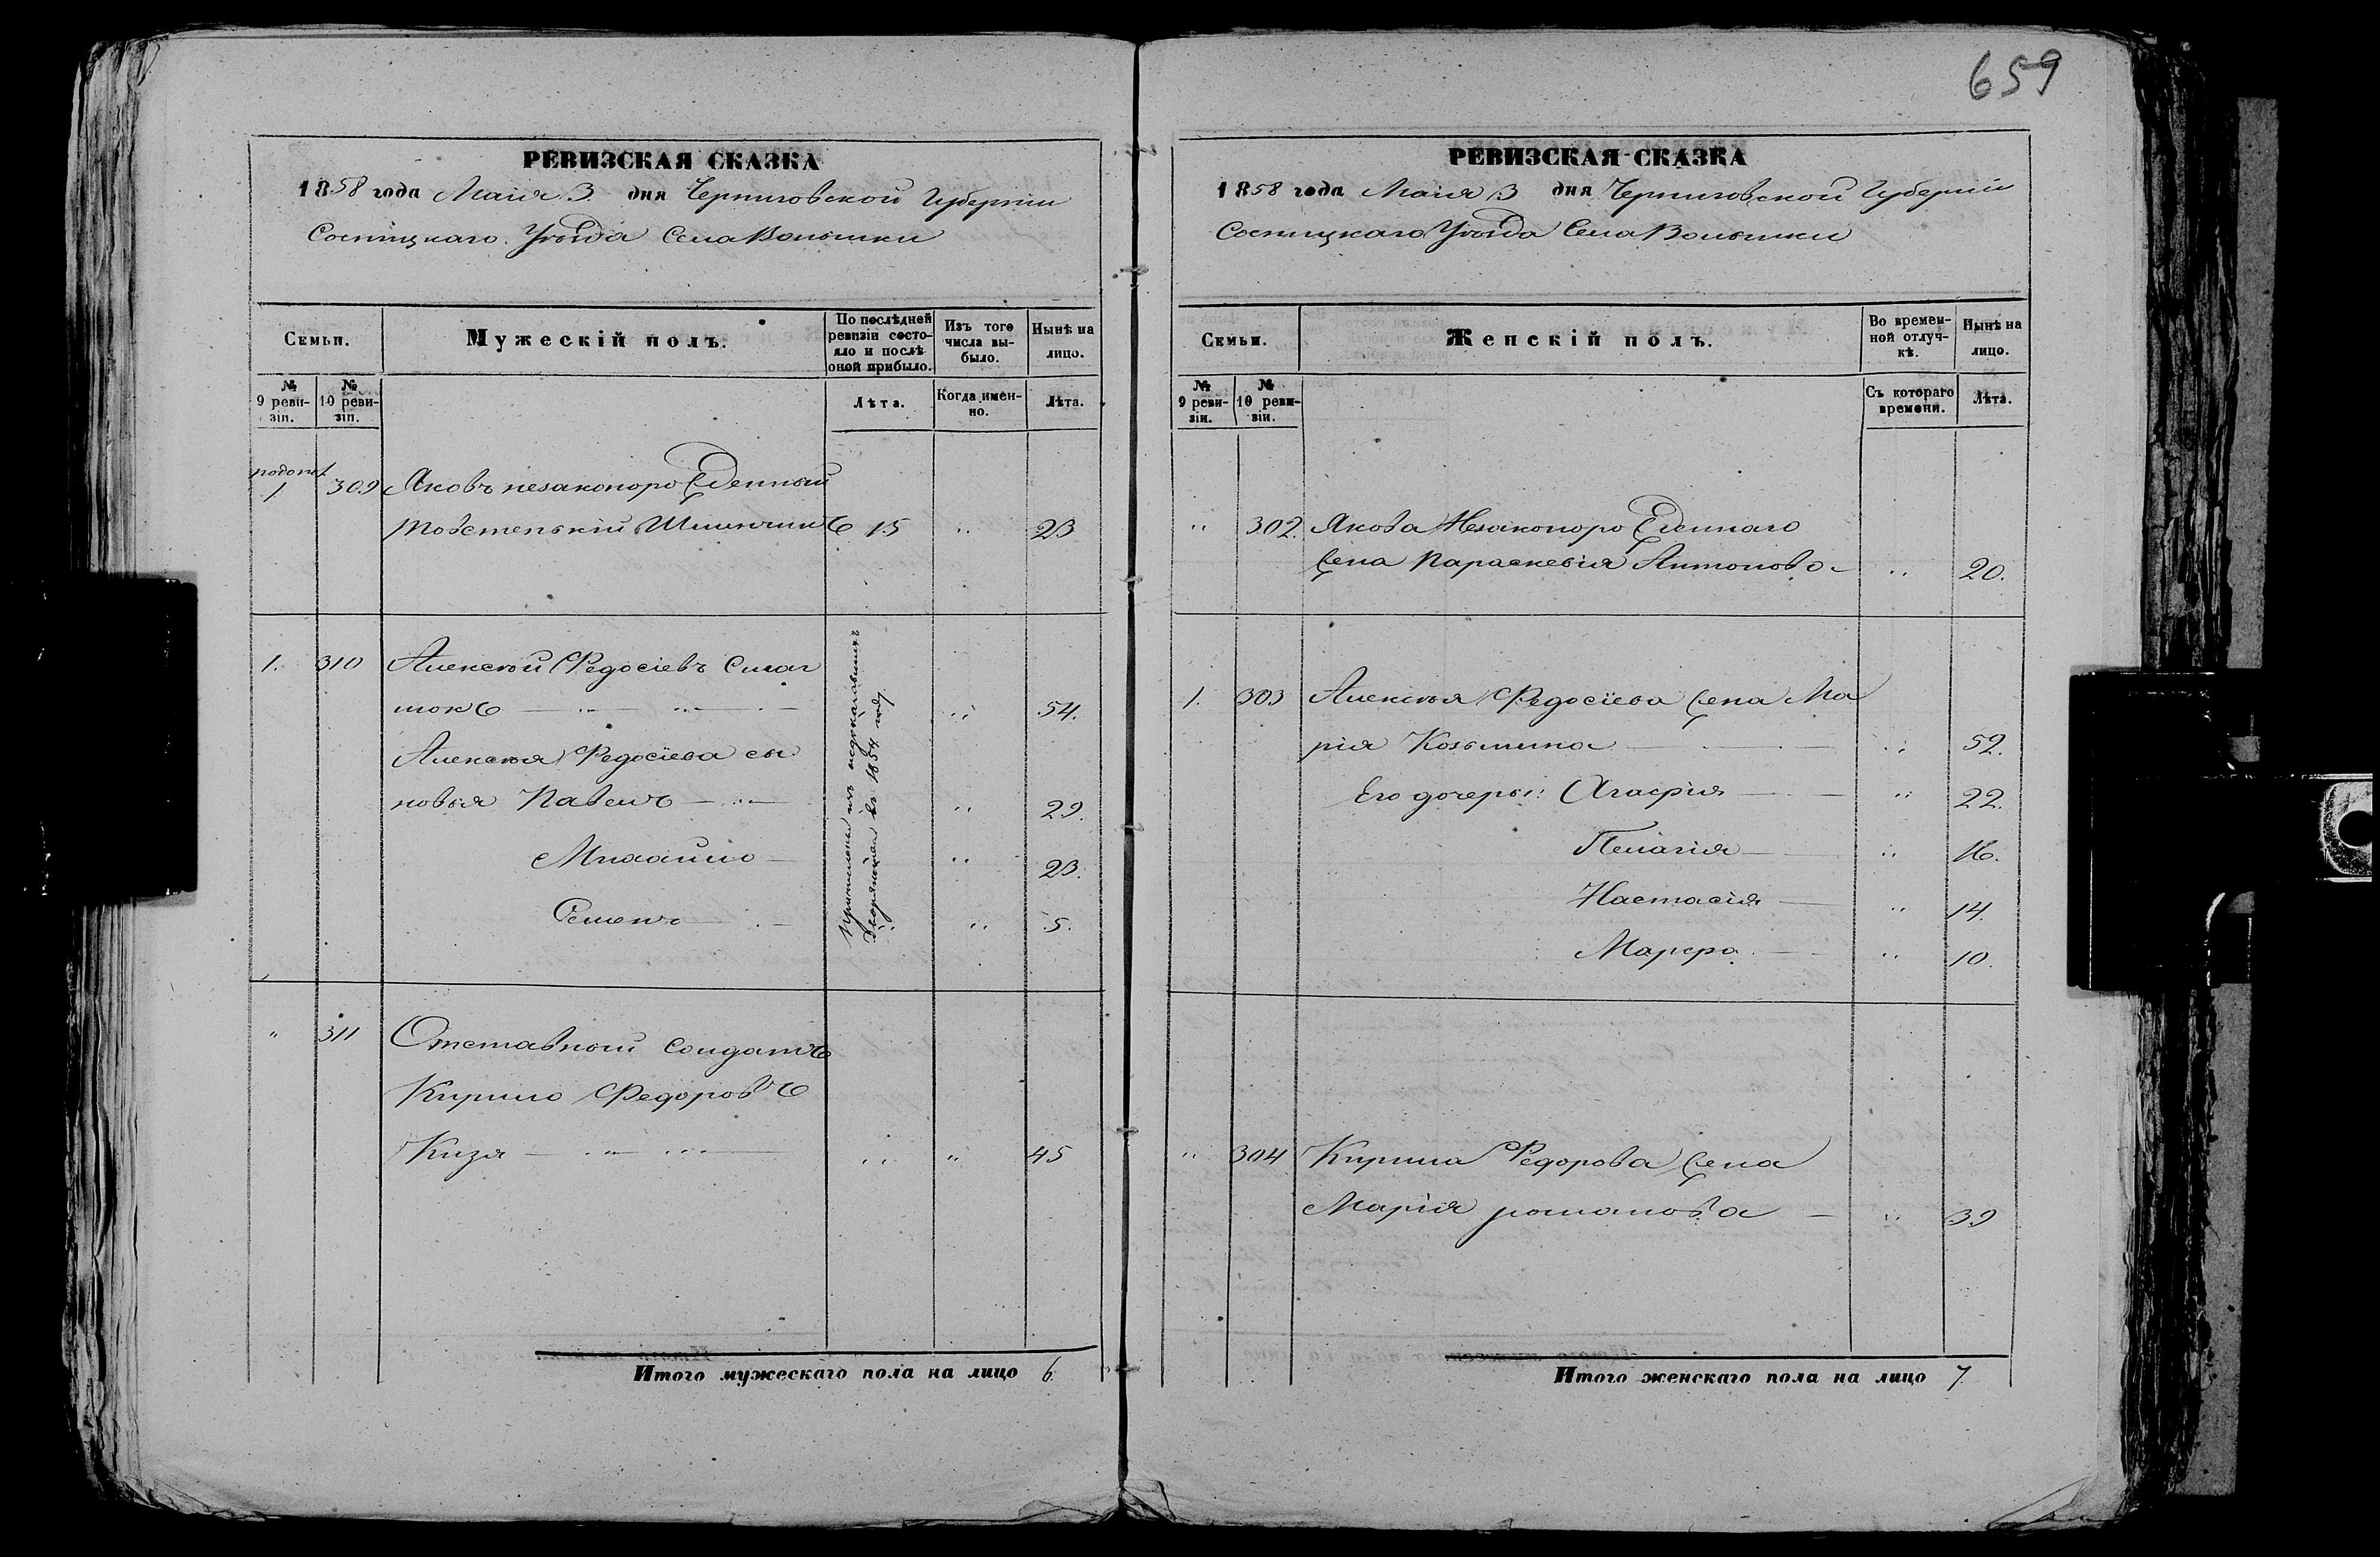 659
РЕВИЗСКАЯ СКАЗКА
1858 года Маія 3 дня Черниговской Губерніи
Сосницкаго Уѣзда Села Волынки
Семьи.
Мужескій полъ.
По послѣдней ревизіи состояло и послѣ оной прибыло.
Изъ того числа выбыло.
Нынѣ на лицо.
№ 9 ревизіи.
№ 10 ревизіи.
Лѣта.
Когда именно.
Лѣта.
1 309 Яковъ незаконорожденный
15 " 23
1. 310 Алексѣй Федосіевъ
54.
Алексѣя Федосіева сы
новья Павелъ 29.
Михайло 23.
Семенъ 5.
въ 1854 году
" 311 Отставной Солдатъ
Кирило Федоровъ
Кизя " " 45
Итого мужескаго пола на лицо 6
РЕВИЗСКАЯ СКАЗКА
1858 года Маія 3 дня Черниговской Губерніи
Сосницкаго Уѣзда Села Волынки
Семьи.
Женскій полъ.
Во временной отлучкѣ.
Нынѣ на лицо.
№ 9 ревизіи.
№ 10 ревизіи.
Съ котораго времени.
Лѣта.
" 302. Якова Незаконорожденнаго
жена Параскевія Антонова " 20.
1. 303 Алексѣя Федосіева жена Ма
рія Козьмина " 52.
Его дочеры: Агафія " 22.
Пелагія " 16.
Настасія " 14.
Марфа " 10.
" 304 Кирила Федорова жена
Марія романова " 39
Итого женскаго пола на лицо 7